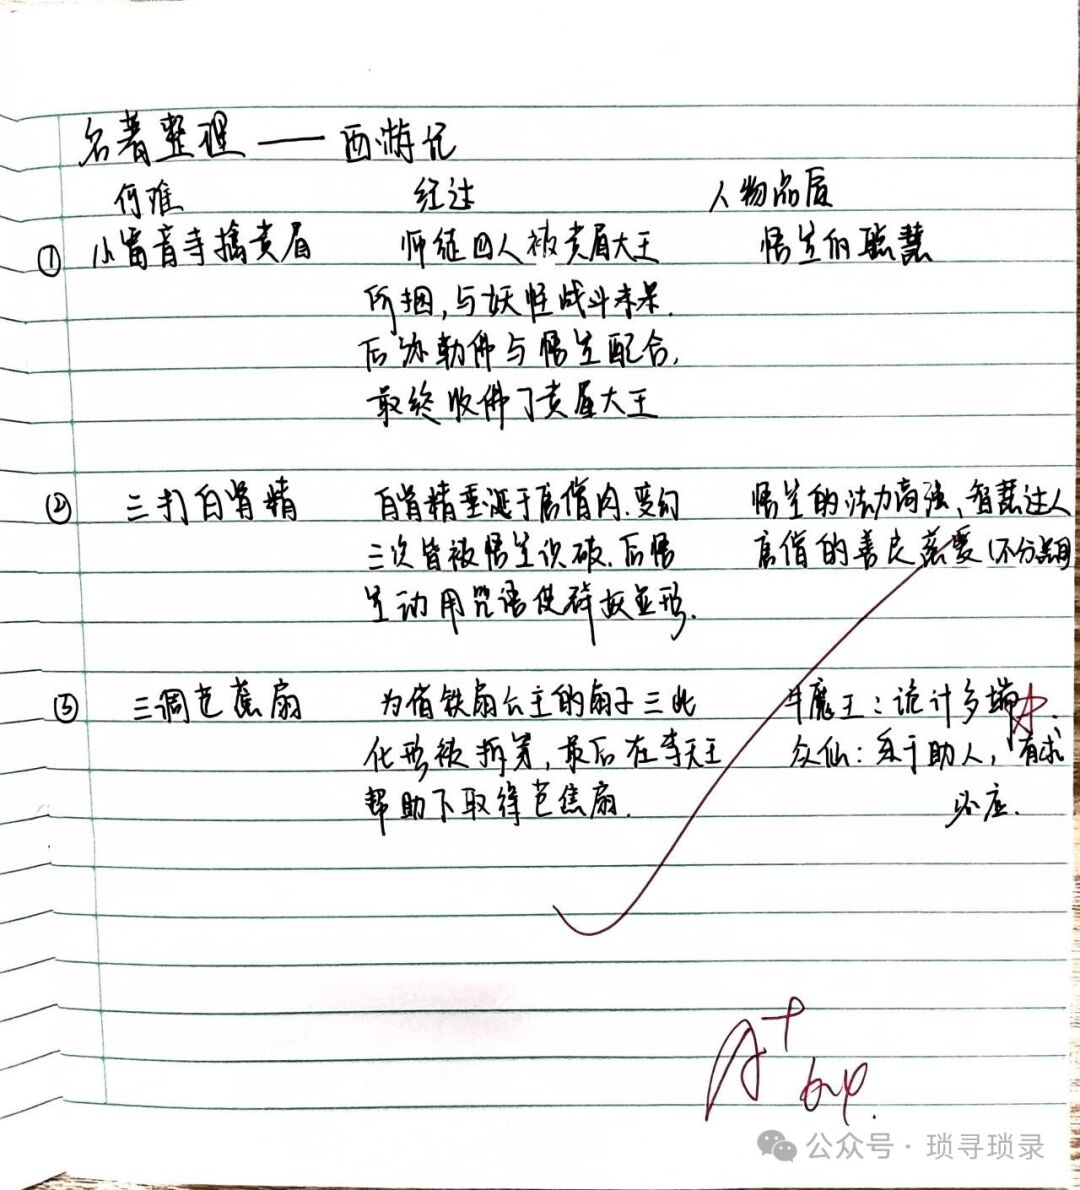 名著整理——西游记
何难 经过 人物品质
① 小雷音寺擒黄眉 师徒四人被黄眉大王 悟空的聪慧
所捆,与妖怪战斗未果.
后弥勒佛与悟空配合,
最终收佛了黄眉大王
② 三打白骨精 白骨精垂涎于唐僧肉.变幻 悟空的法力高强、智慧过人
三次皆被悟空识破.后悟 唐僧的善良慈爱(不分
空动用咒语使碎故显形.
③ 三调芭蕉扇 为借铁扇公主的扇子三次 牛魔王:诡计多端
化形被拆穿,最后在李天王 众仙:乐于助人,有求
帮助下取得芭焦扇. 必应.
A+
公众号·琐寻琐录